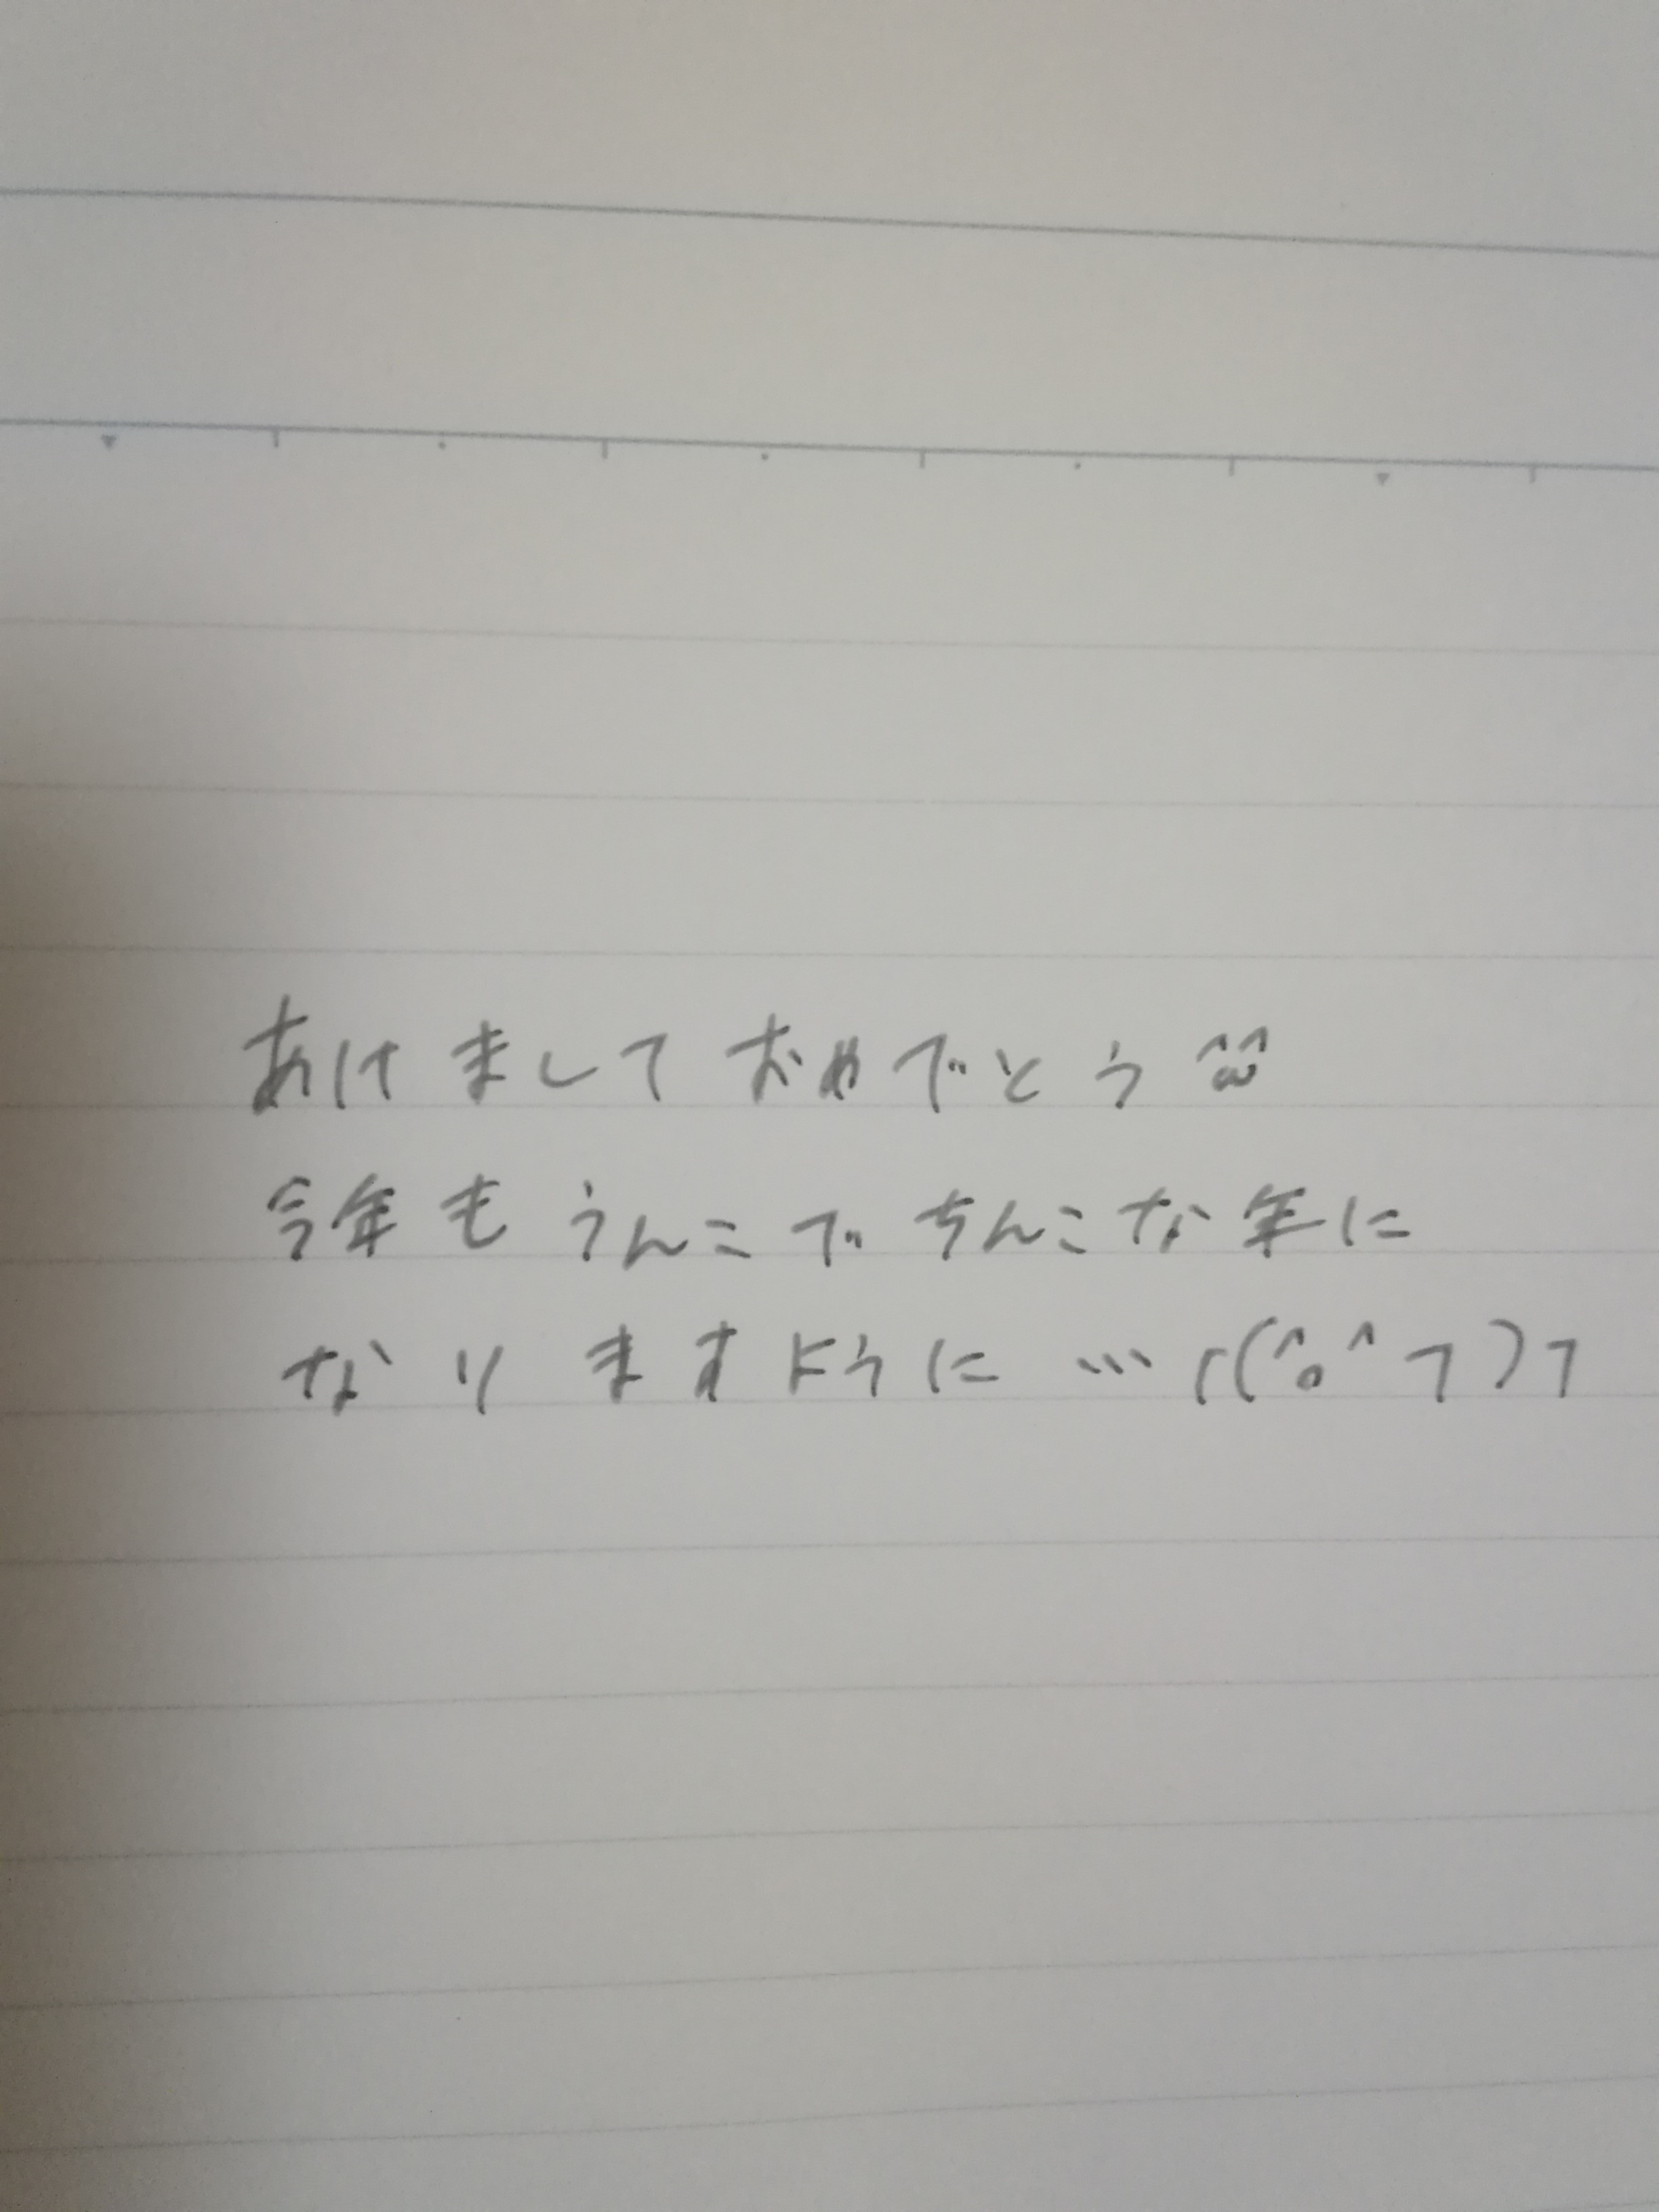 あけましておめでとう^ω^
今年もうんこでちんこな年に
なりますように…┌(^o^┐)┐